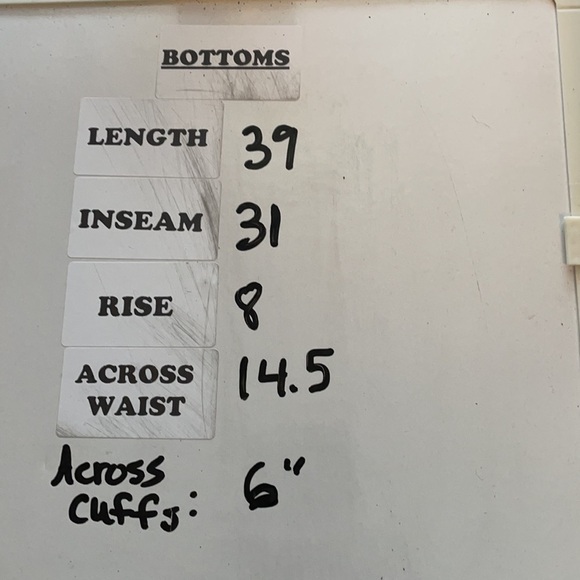 BOTTOMS
LENGTH 39
INSEAM 31
RISE 8
ACROSS WAIST 14.5
Across
Cuffs: 6"